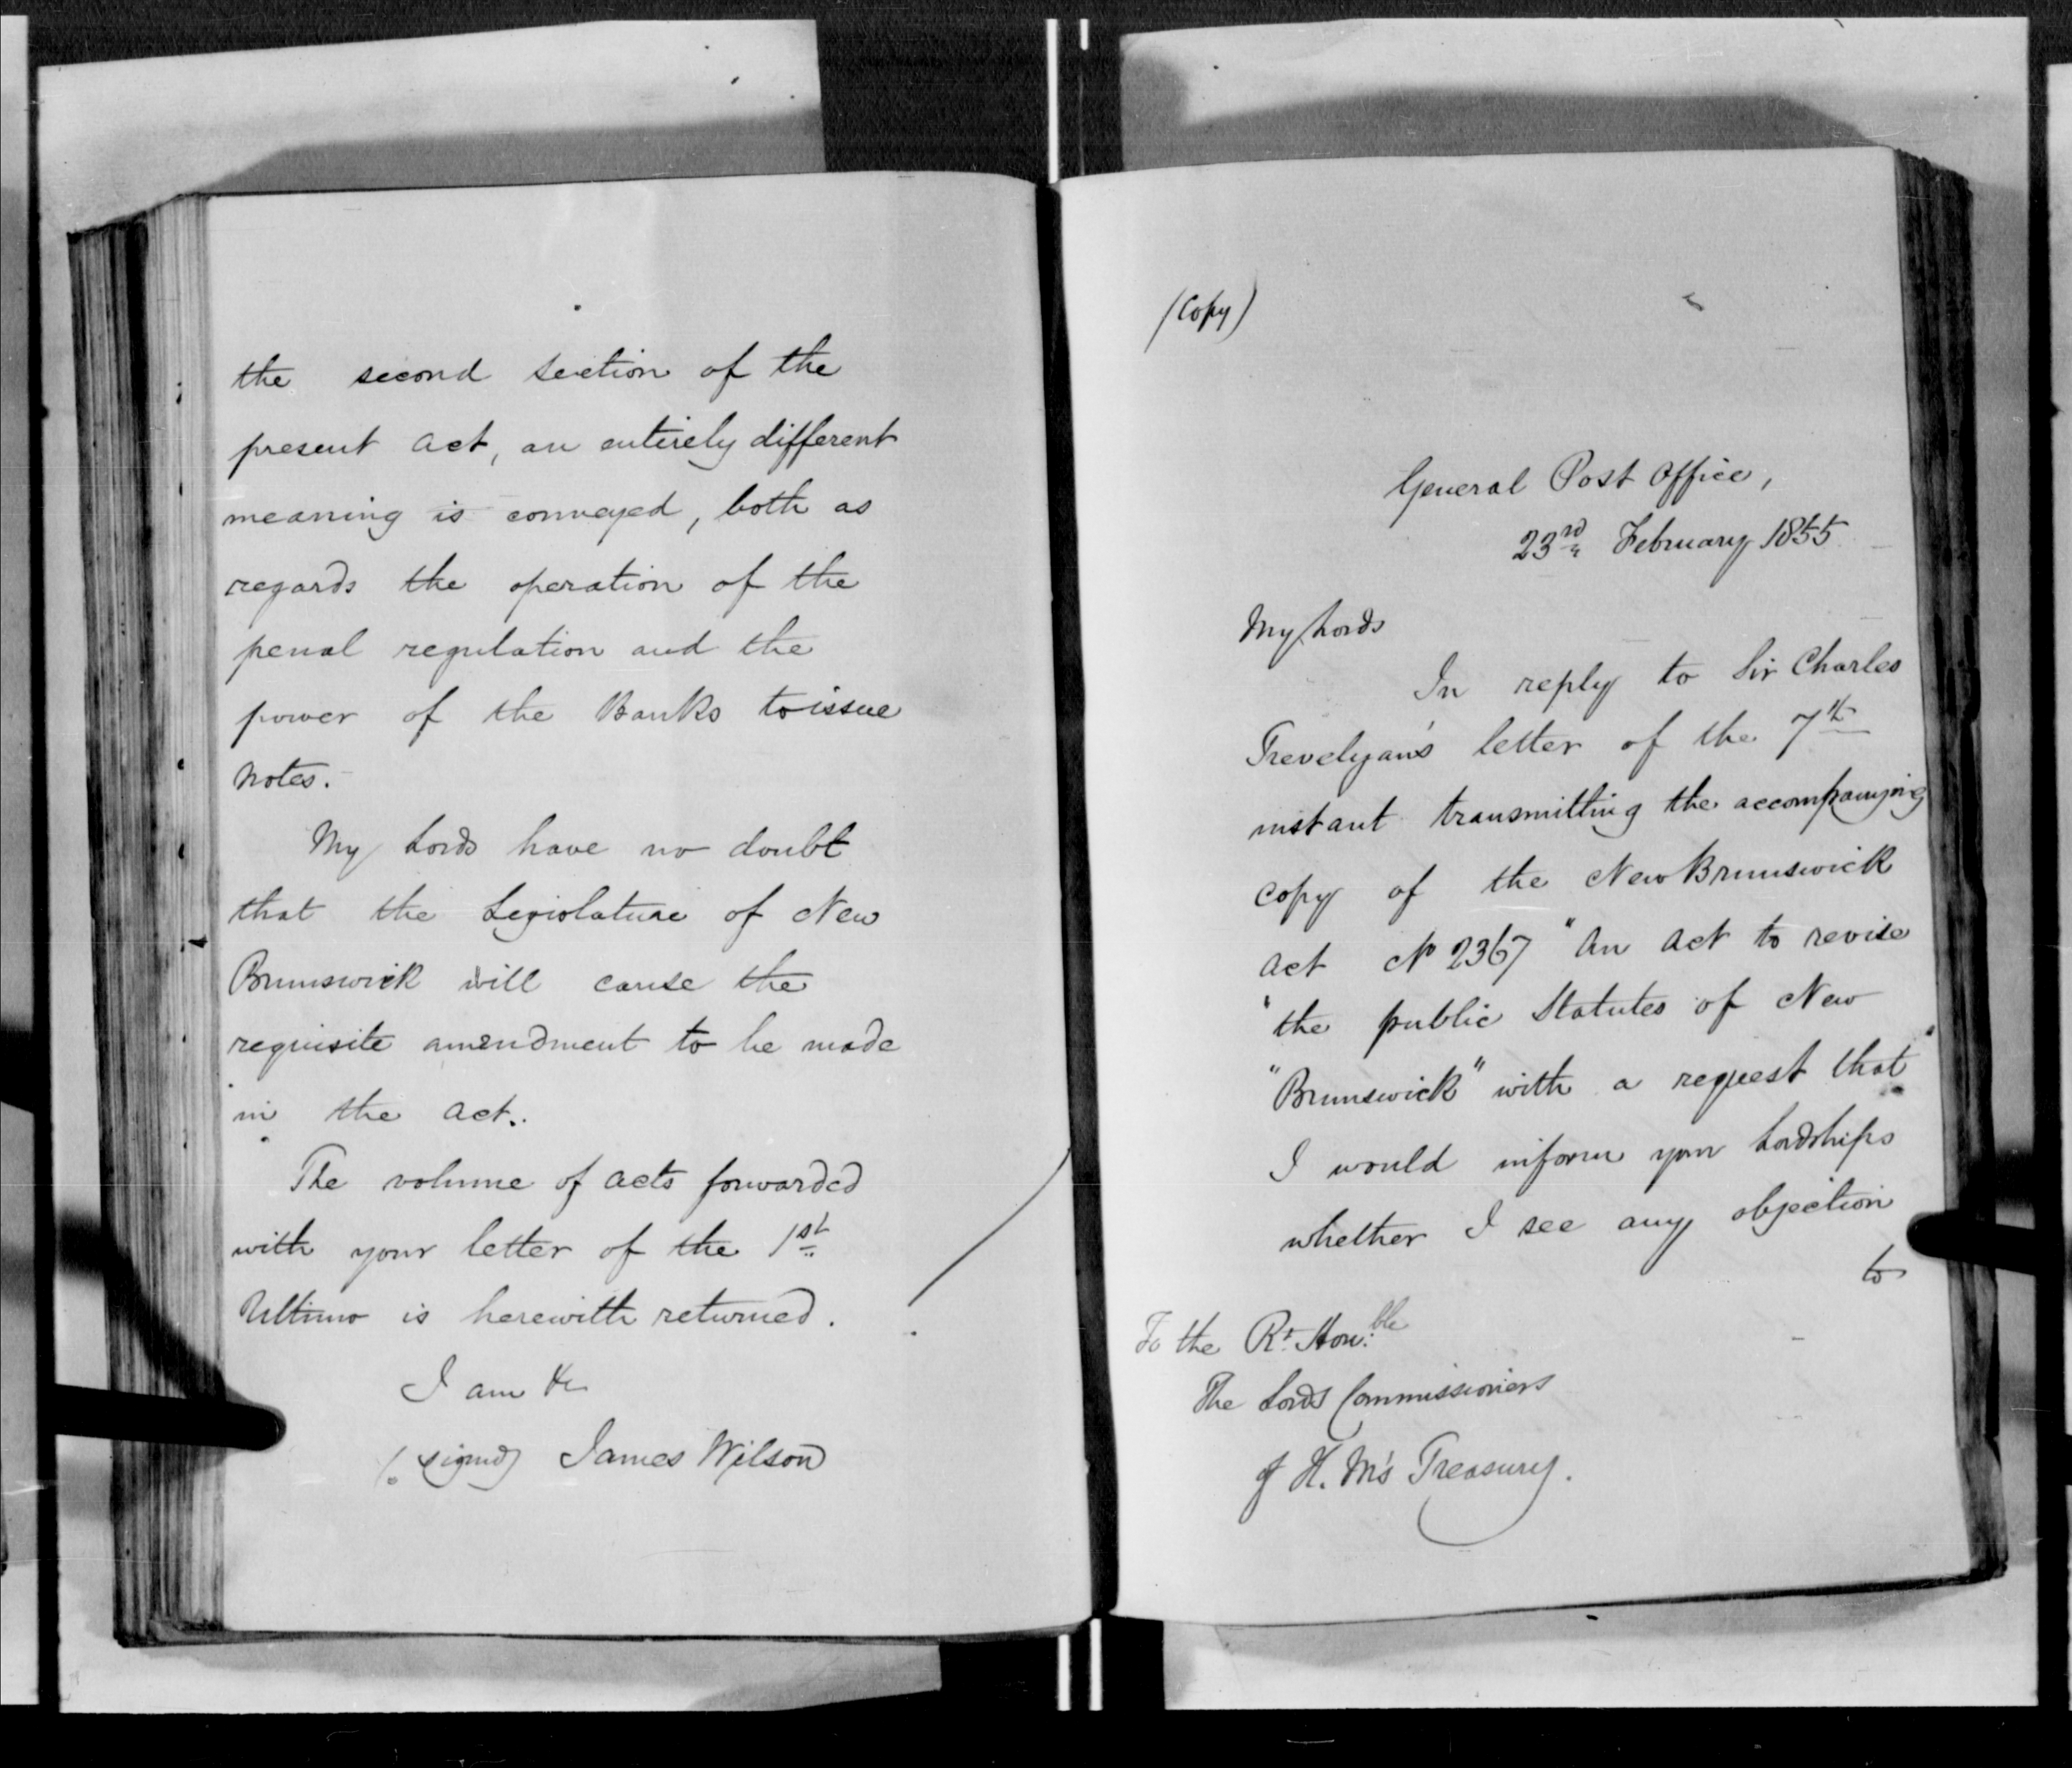 the second section of the
present act, an entirely different
meaning is conveyed, both as
regards the operation of the
penal regulation and the
power of the Banks to issue
notes.
My Lords have no doubt
that the Legislature of New
Brunswick will cause the
requisite amendment to be made
in the act.
The volume of acts forwarded
with your letter of the 1st
Ultimo is herewith returned.
I am &c
(signed) James Wilson
(Copy)
General Post Office,
23rd February 1855
My Lords
In reply to Sir Charles
Trevelyan's letter of the 7th
instant transmitting the accompanying
copy of the New Brunswick
act No 2367 "An act to revise
"the public Statutes of New
"Brunswick" with a request that
I would inform your Lordships
whether I see any objection
to
To the Rt Honble
The Lords Commissioners
of H. M's Treasury.